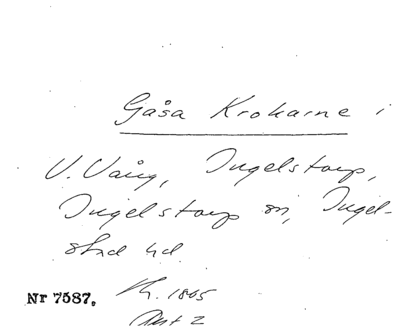 Gåsa Krokarne i
V. Vång, Ingelstorp,
Ingelstorp sn, Ingel-
stad hd.
Nr 7587.
1865
Akt 2